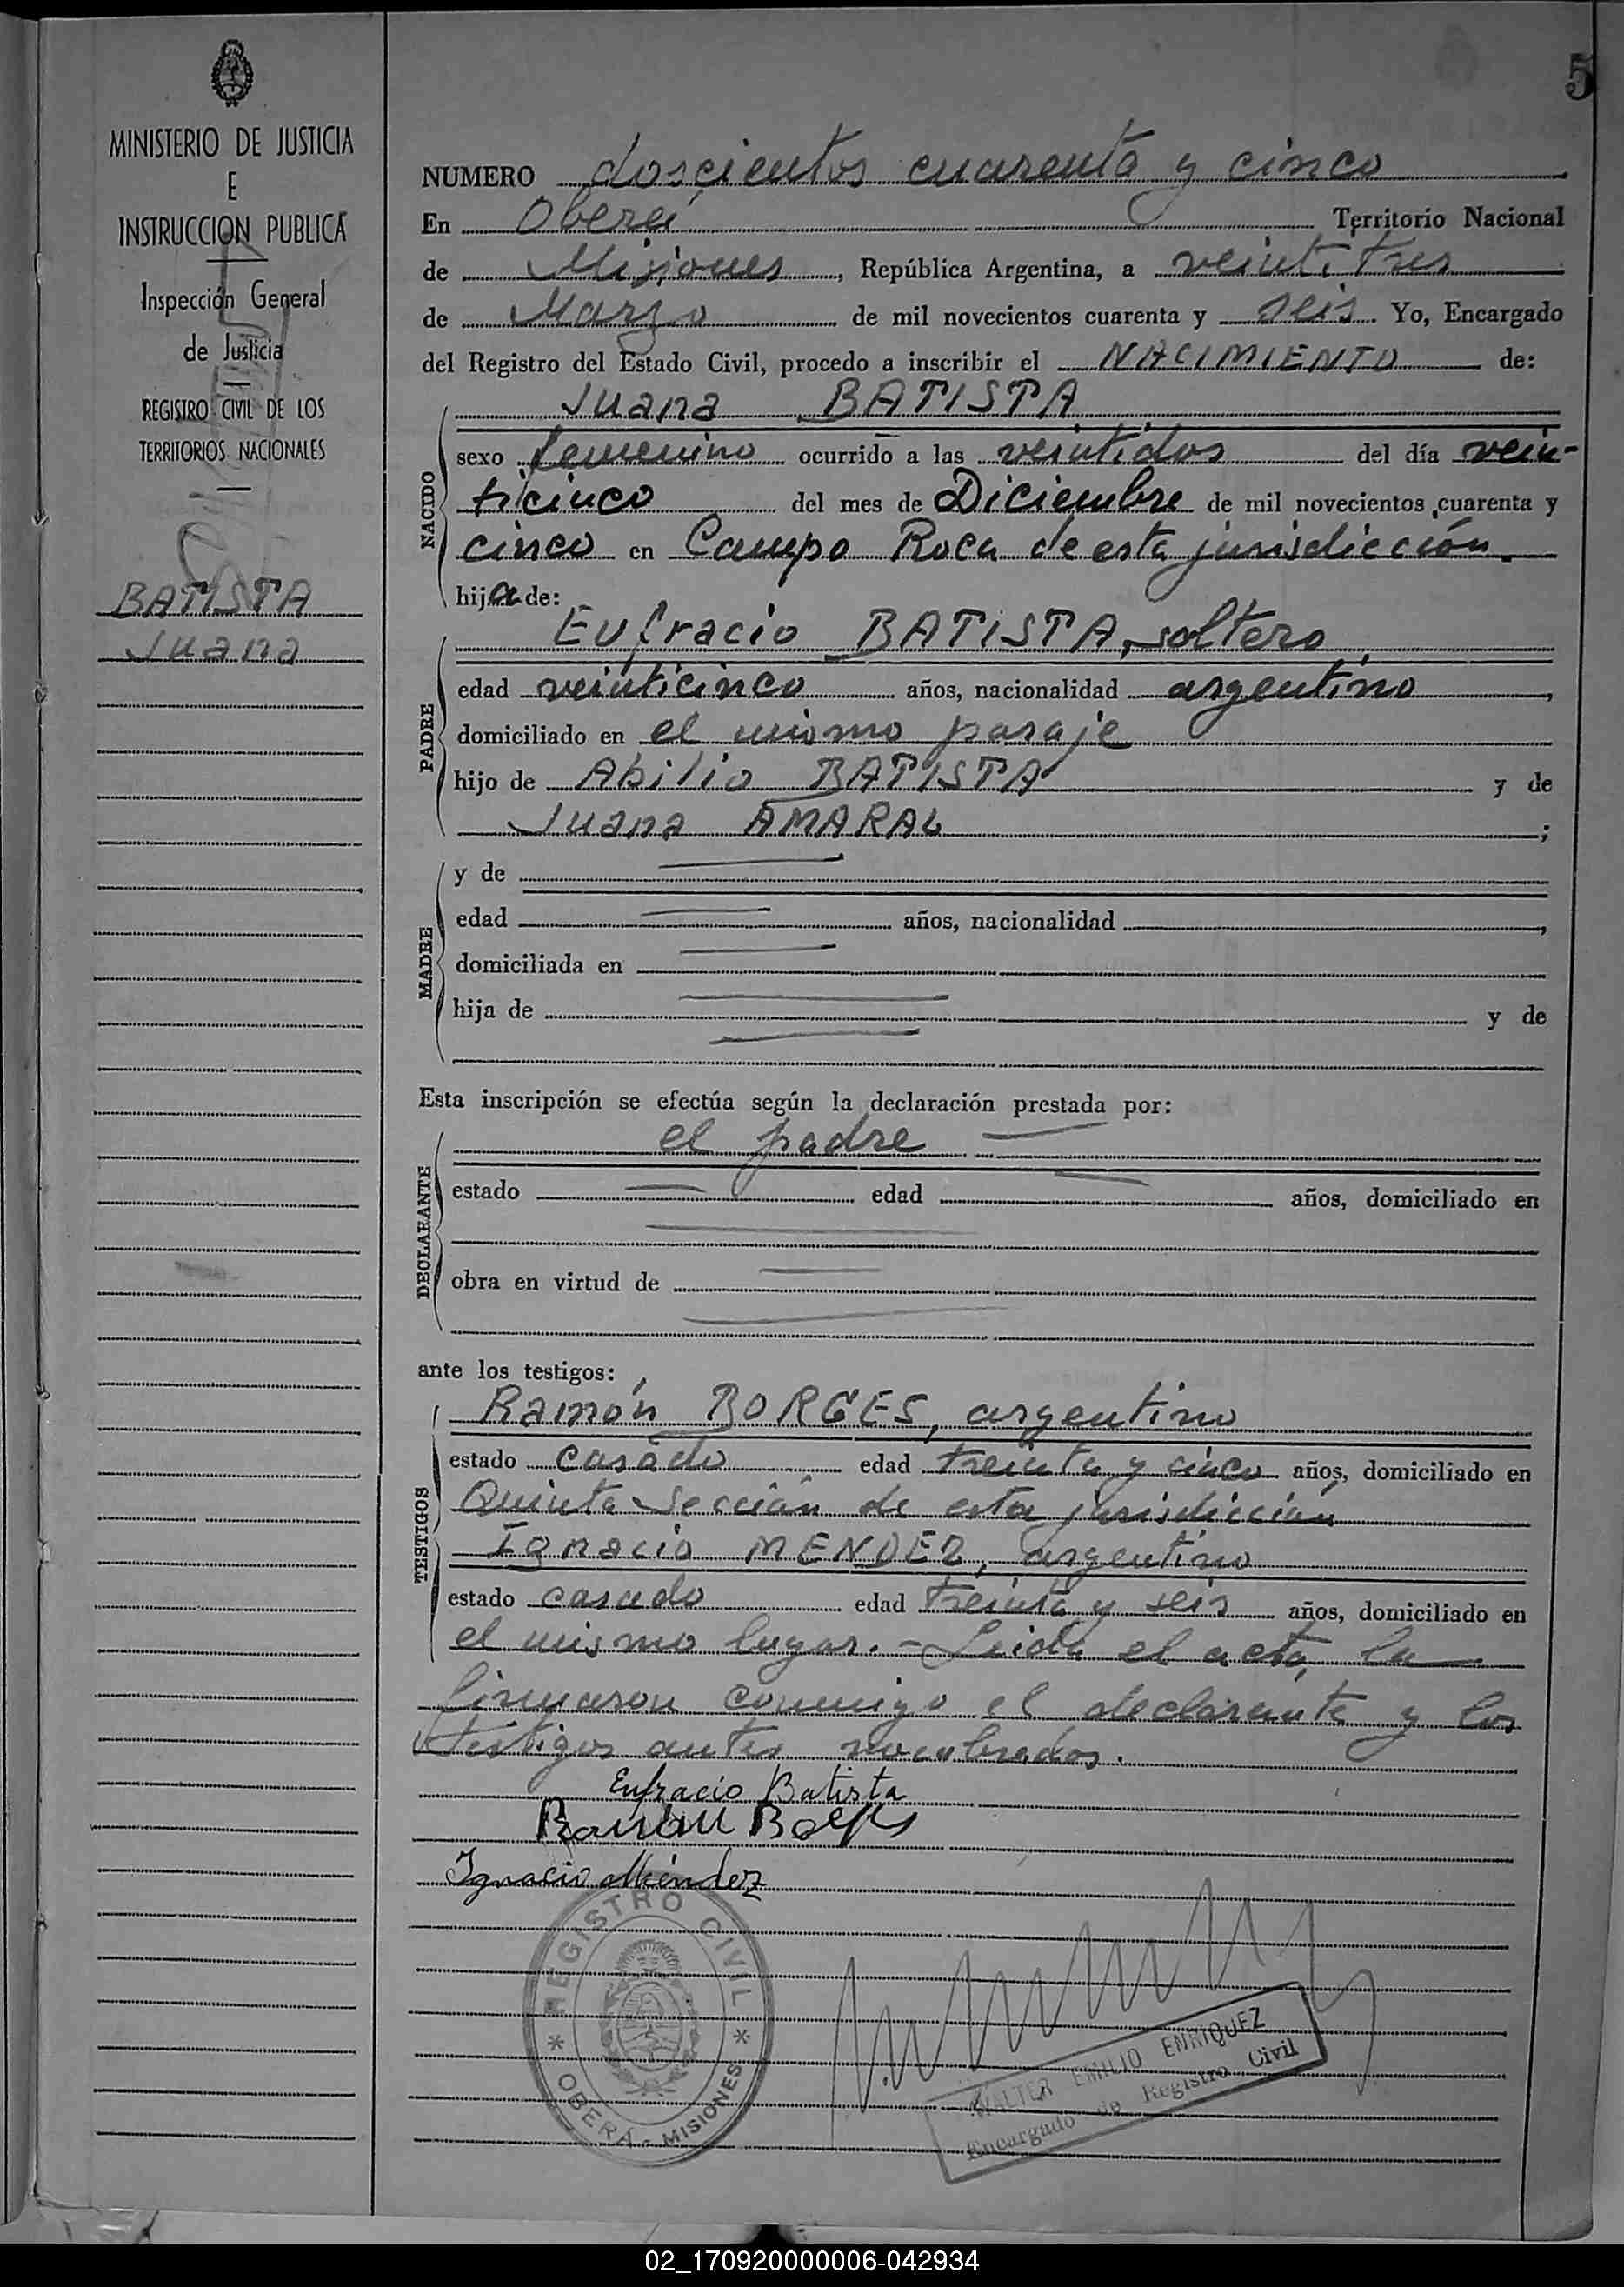 5
MINISTERIO DE JUSTICIA
E
INSTRUCCION PUBLICA
Inspección General
de Justicia
REGISTRO CIVIL DE LOS
TERRITORIOS NACIONALES
BATISTA
Juana
NUMERO doscientos cuarenta y cinco
En Oberá Territorio Nacional
de Misiones, República Argentina, a veintitres
de Marzo de mil novecientos cuarenta y seis. Yo, Encargado
del Registro del Estado Civil, procedo a inscribir el NACIMIENTO de:
NACIDO
Juana BATISTA
sexo femenino ocurrido a las veintidos del día vein-
ticinco del mes de Diciembre de mil novecientos cuarenta y
cinco en Campo Roca de esta jurisdicción.
hija de:
PADRE
Eufracio BATISTA, soltero
edad veinticinco años, nacionalidad argentino,
domiciliado en el mismo paraje
hijo de Abilio BATISTA y de
Juana AMARAL;
MADRE
y de
edad años, nacionalidad,
domiciliada en
hija de y de
Esta inscripción se efectúa según la declaración prestada por:
DECLARANTE
el padre
estado edad años, domiciliado en
obra en virtud de
ante los testigos:
TESTIGOS
Ramón BORGES, argentino
estado casado edad treinta y cinco años, domiciliado en
Quinta Sección de esta jurisdicción
Ignacio MENDEZ, argentino
estado casado edad treinta y seis años, domiciliado en
el mismo lugar.- Leida el acta, la
firmaron conmigo el declarante y los
testigos antes nombrados.
Eufracio Batista
Ramón Borges
Ignacio Méndez
REGISTRO CIVIL
* OBERA - MISIONES *
WALTER EMILIO ENRIQUEZ
Encargado de Registro Civil
02_170920000006-042934